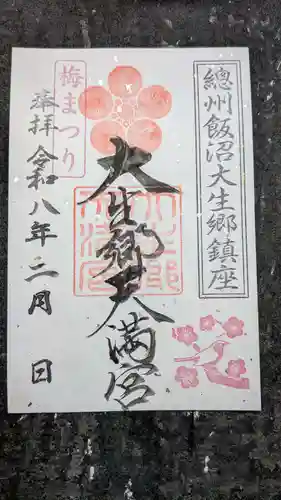 總州飯沼大生郷鎮座
大生郷天満宮
梅まつり
奉拝 令和八年二月 日